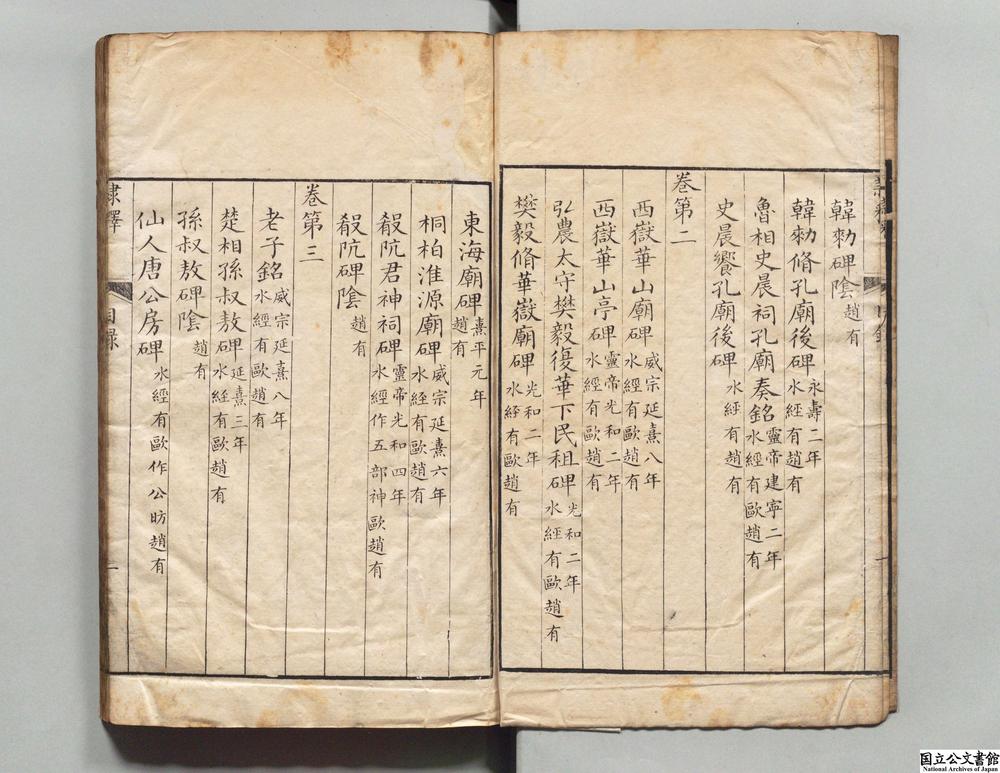 韓勑碑陰 趙有
韓勑脩孔廟後碑 永壽二年 水經有趙有
魯相史晨祠孔廟奏銘 靈帝建寧二年 水經有歐趙有
史晨饗孔廟後碑 水經有趙有
卷第二
西嶽華山廟碑 威宗延熹八年 水經有歐趙有
西嶽華山亭碑 靈帝光和二年 水經有歐趙有
弘農太守樊毅復華下民租碑 光和二年 水經有歐趙有
樊毅脩華嶽廟碑 光和二年 水經有歐趙有
東海廟碑 熹平元年 趙有
桐柏淮源廟碑 威宗延熹六年 水經有歐趙有
殽阬君神祠碑 靈帝光和四年 水經作五部神歐趙有
殽阬碑陰 趙有
卷第三
老子銘 威宗延熹八年 水經有歐趙有
楚相孫叔敖碑 延熹三年 水經有歐趙有
孫叔敖碑陰 趙有
仙人唐公房碑 水經有歐作公昉趙有
隸釋 目録 一
国立公文書館
National Archives of Japan